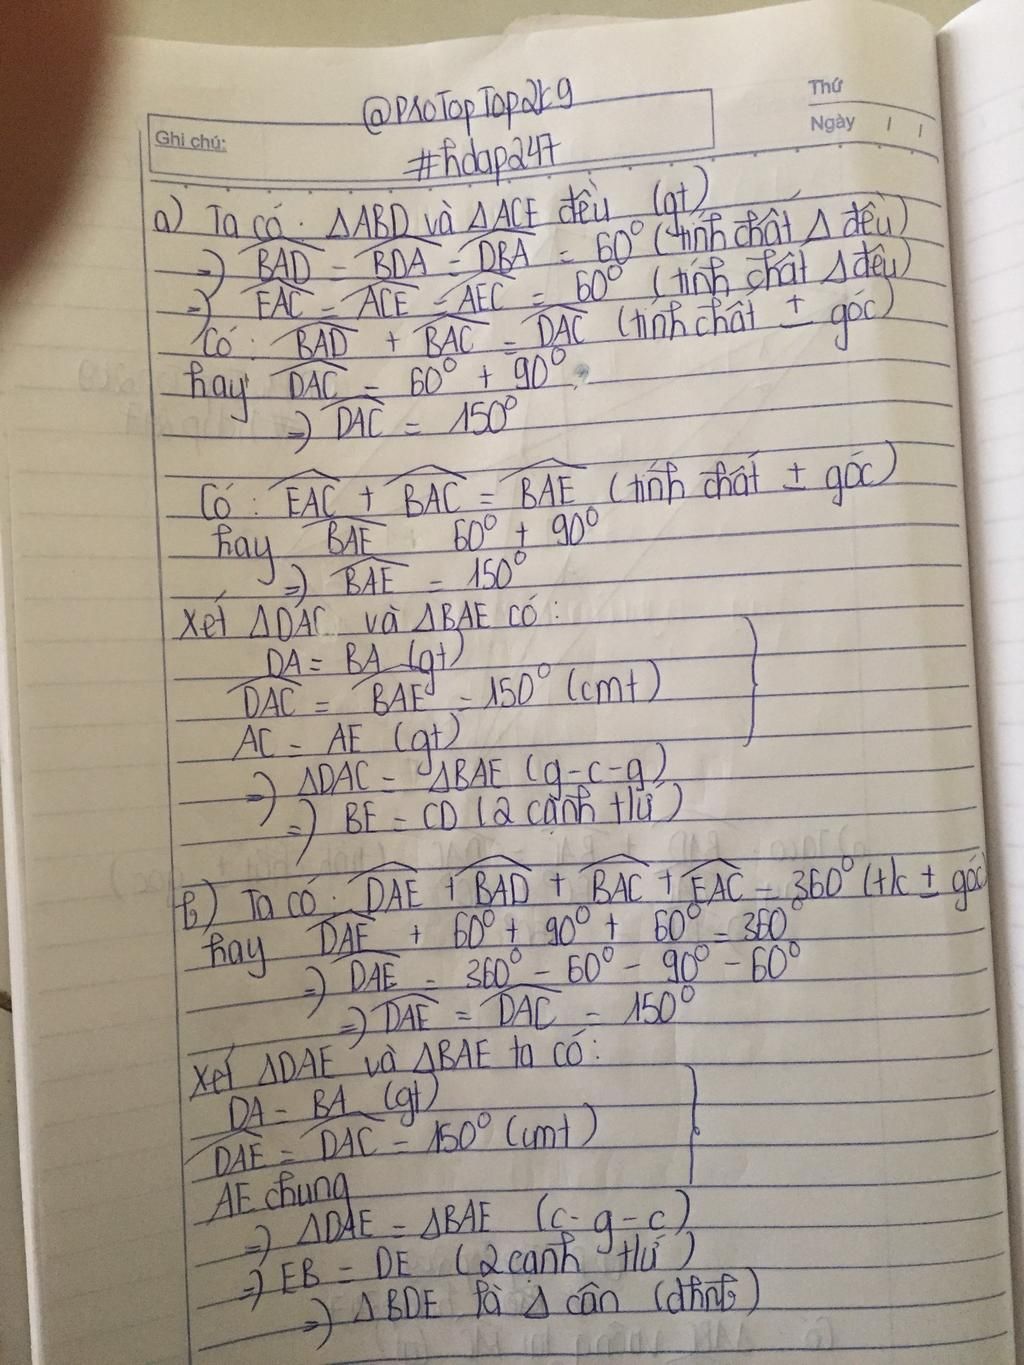 @P10TopTop2k9
Thứ
Ghi chú:
Ngày / /
#hdap247
a) Ta có: ΔABD và ΔACE đều (gt)
=) BAD = BDA = DBA = 60° (tính chất Δ đều)
=) EAC = ACE = AEC = 60° (tính chất Δ đều)
Có: BAD + BAC = DAC (tính chất ± góc)
hay DAC = 60° + 90°
=) DAC = 150°
Có: EAC + BAC = BAE (tính chất ± góc)
hay BAE 60° + 90°
=) BAE = 150°
Xét ΔDAC và ΔBAE có:
DA = BA (gt)
DAC = BAE = 150° (cmt)
AC = AE (gt)
=) ΔDAC = ΔBAE (g-c-g)
=) BE = CD (2 cạnh tứ)
b) Ta có: DAE + BAD + BAC + EAC = 360° (tk ± góc)
hay DAE + 60° + 90° + 60° = 360°
=) DAE = 360° - 60° - 90° - 60°
=) DAE = DAC = 150°
Xét ΔDAE và ΔBAE ta có:
DA = BA (gt)
DAE = DAC = 150° (cmt)
AE chung
=) ΔDAE = ΔBAE (c-g-c)
=) EB = DE (2 cạnh tứ)
=) ΔBDE là Δ cân (dhnb)